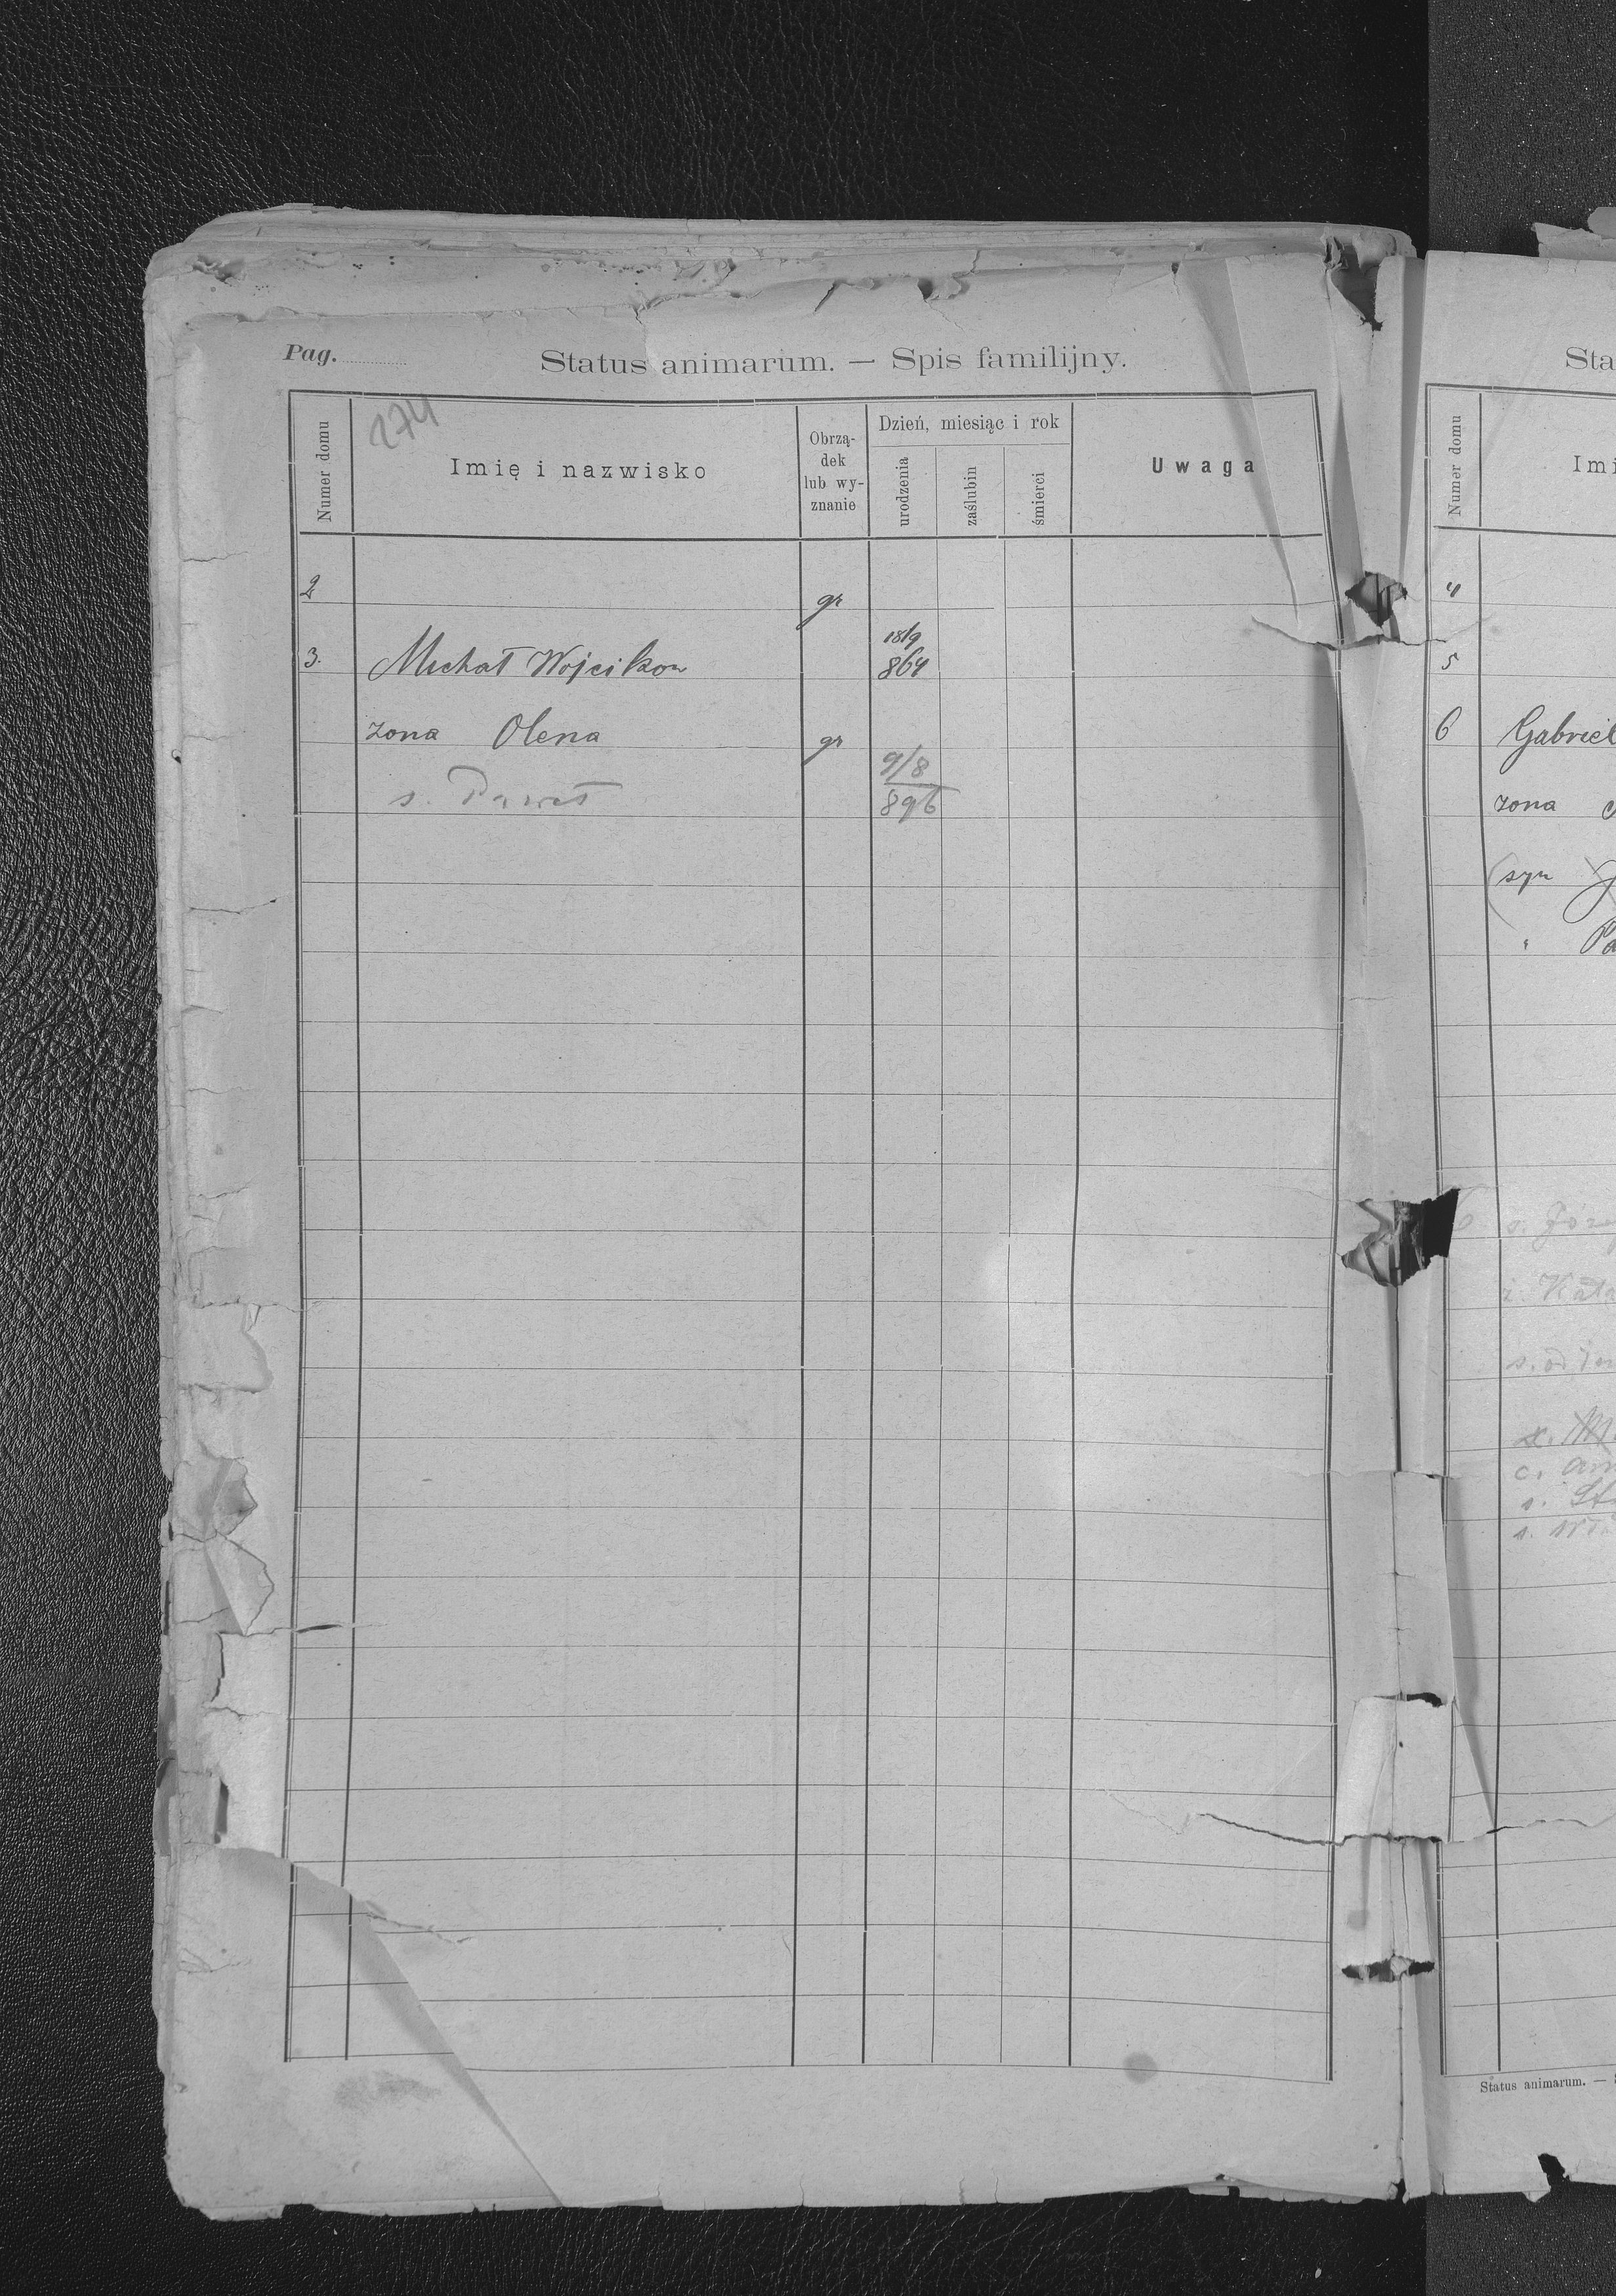 Pag.
Status animarum. — Spis familijny.
274
Numer domu
Imię i nazwisko
Obrzą-
dek
lub wy-
znanie
Dzień, miesiąc i rok
urodzenia
zaślubin
śmierci
Uwaga
2
gr
3. Michał Wojcikow 18/9
864
zona Olena gr
s. Paweł 9/8
896
Sta
Numer domu
Imi
4
5
6 Gabriel
zona
(syn
" Pa
s. Józ
ż. Kata
c. Ann
s. St
Status animarum. —